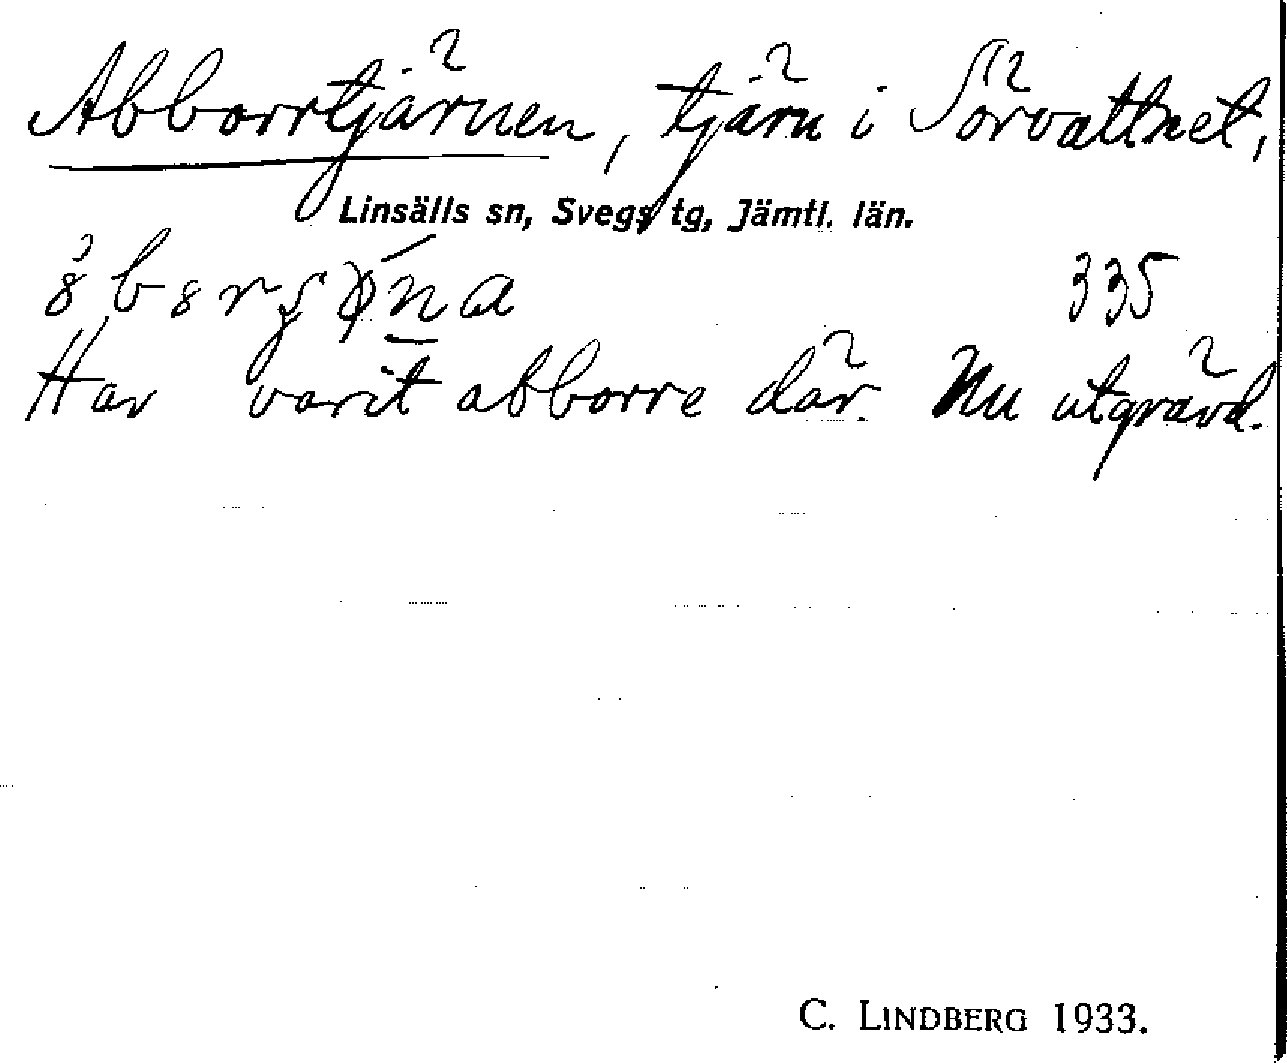 Abborrtjärnen, tjärn i Sörvattnet,
Linsälls sn, Svegs tg, Jämtl. län.
335
Har varit abborre där. Nu utgrävd.
C. LINDBERG 1933.